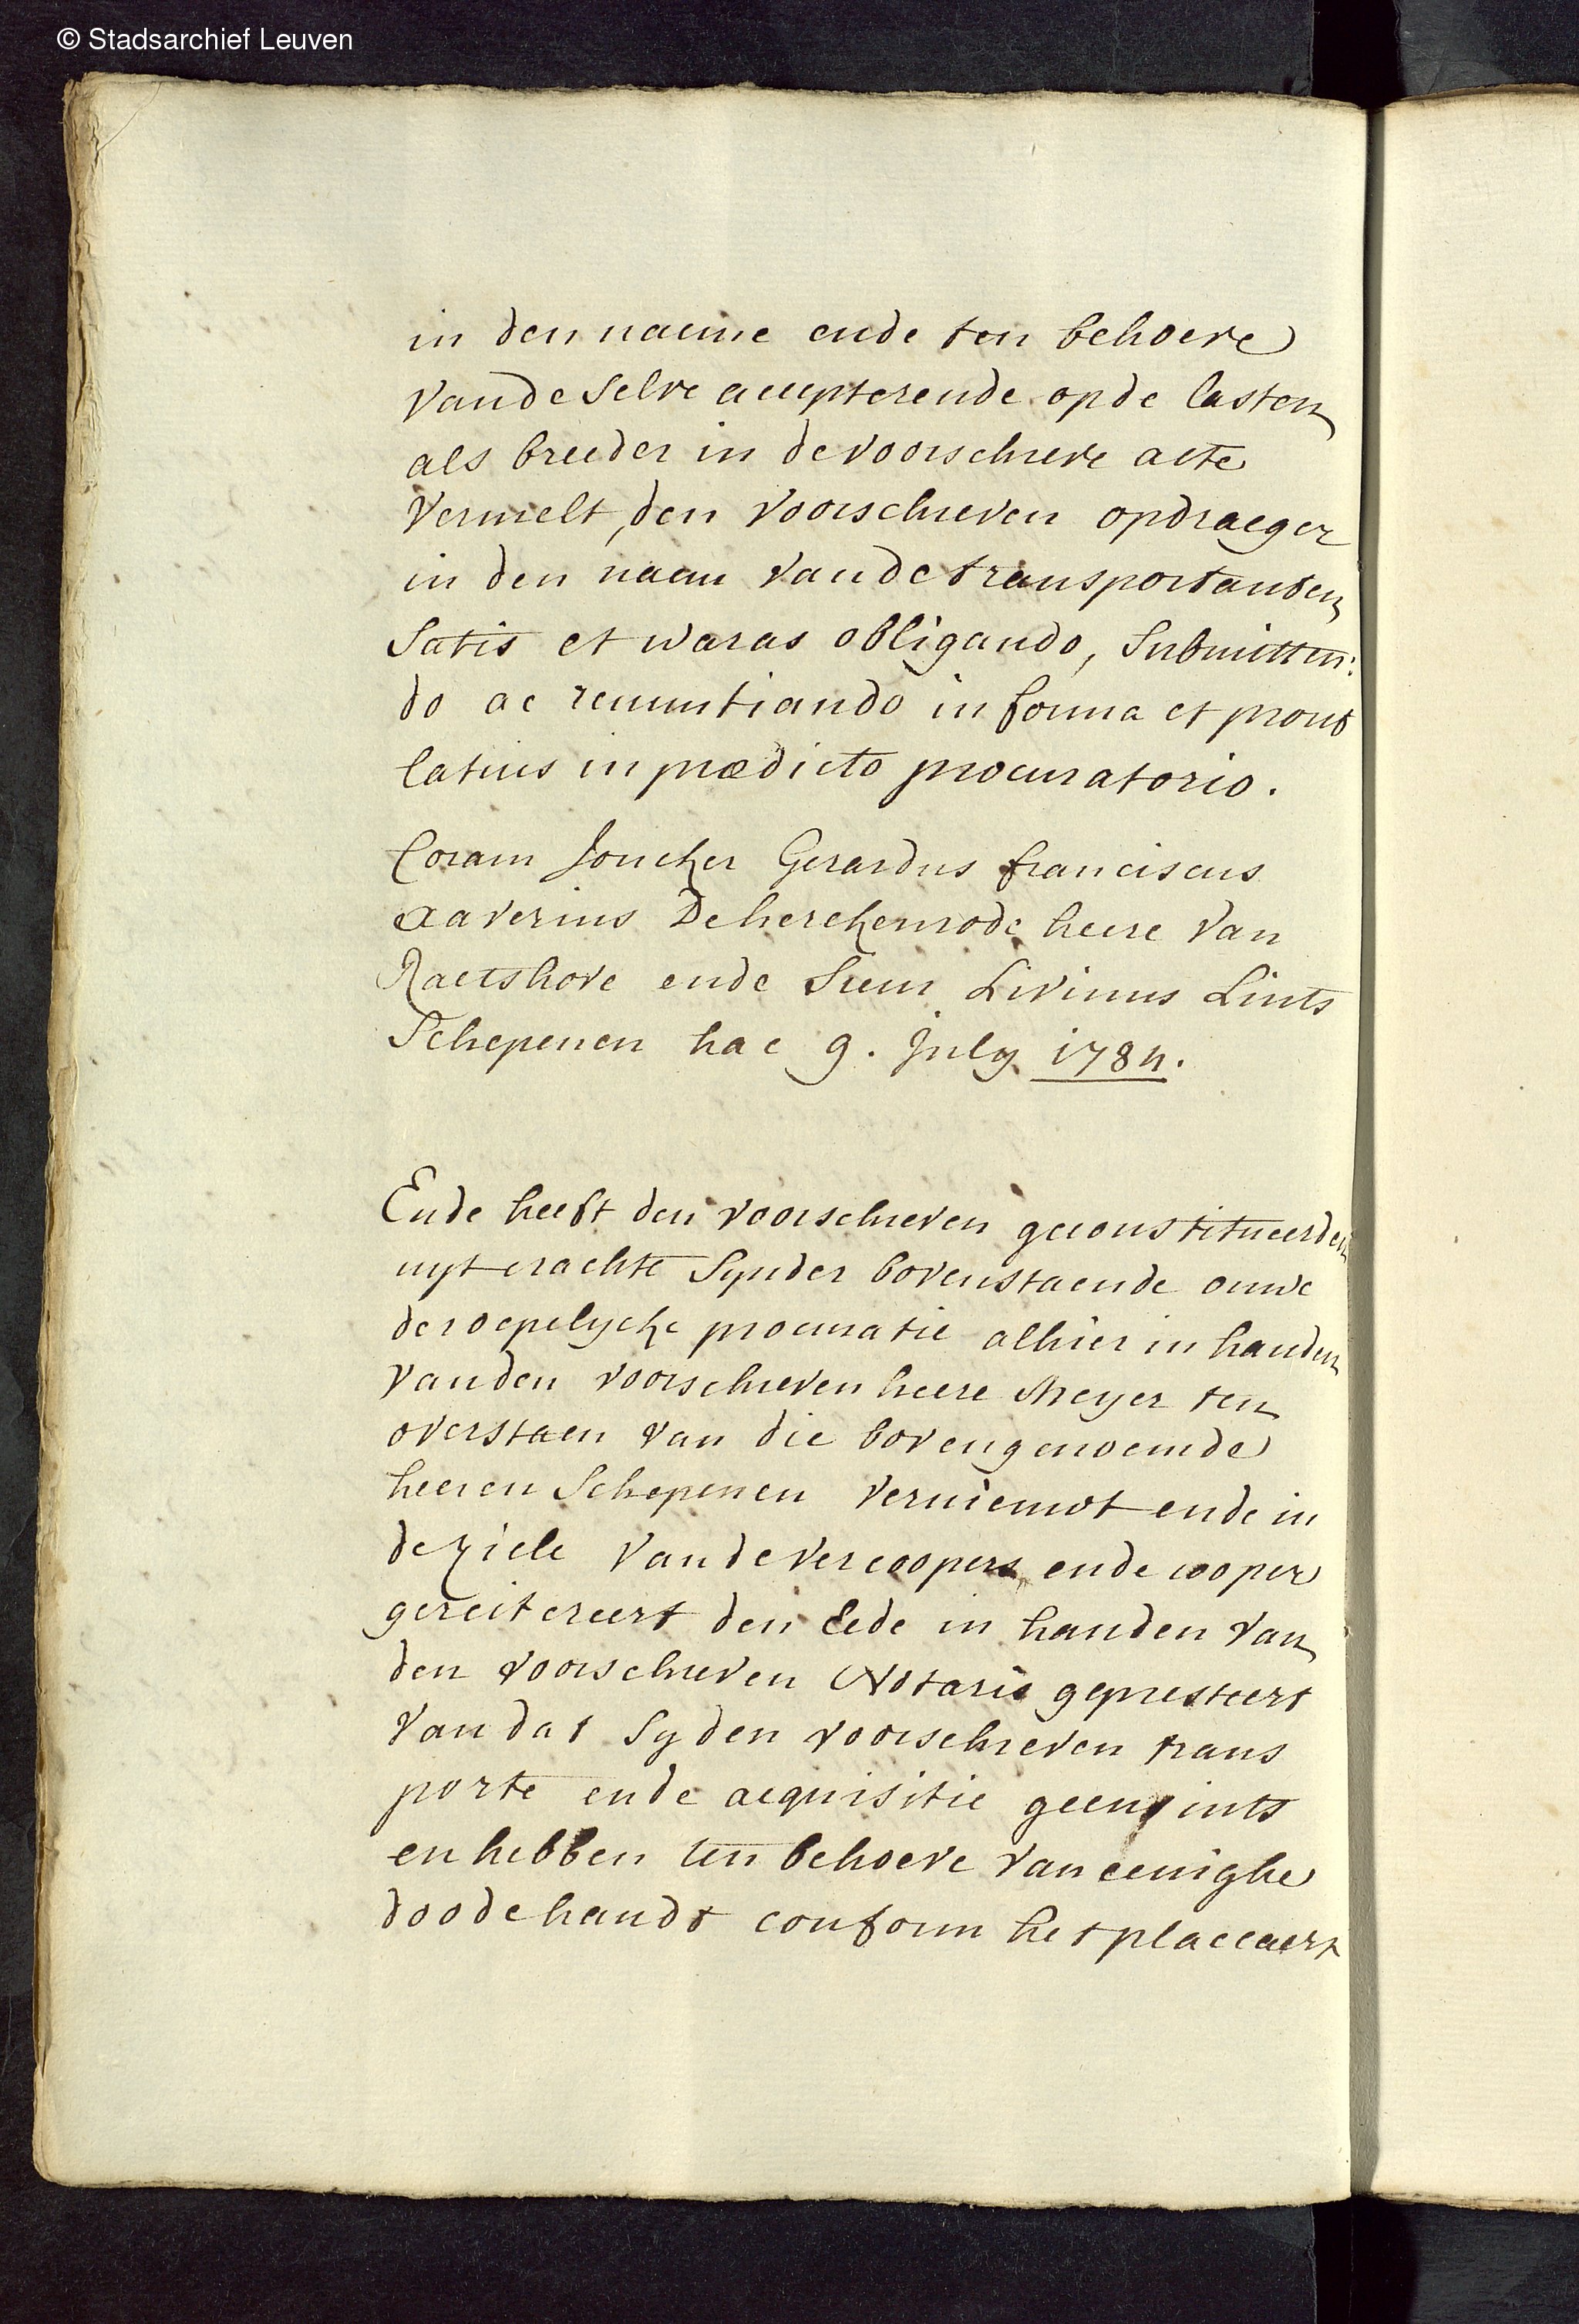 © Stadsarchief Leuven
in den naeme ende ten behoeve
vande selve accepterende op de lasten
als breeder in de voorschreve acte
vermelt, den voorschreven opdraeger
in den naem vande transportanten
satis et waras obligando, submitten:
do ac renuntiando in forma et prout
latius in prædicto procuratorio.
Coram Joncker Gerardus franciscus
xaverius De herckenrode heere van
Raetshove ende Sieur Livinus Lints
Schepenen hac 9. July 1784.
Ende heeft den voorschreven geconstitueerden
uyt crachte synder bovenstaende onwe
deroepelycke procuratie alhier in handen
vanden voorschreven heere Meyer ten
overstaen van die bovengenoemde
heeren Schepenen vernieuwt ende in
de ziele vande vercoopers ende cooper
gereitereert den Eede in handen van
den voorschreven Notaris gepresteert
van dat sy den voorschreven trans
porte ende acquisitie geensints
en hebben ten behoeve van eenighe
doode handt conform het placcaert